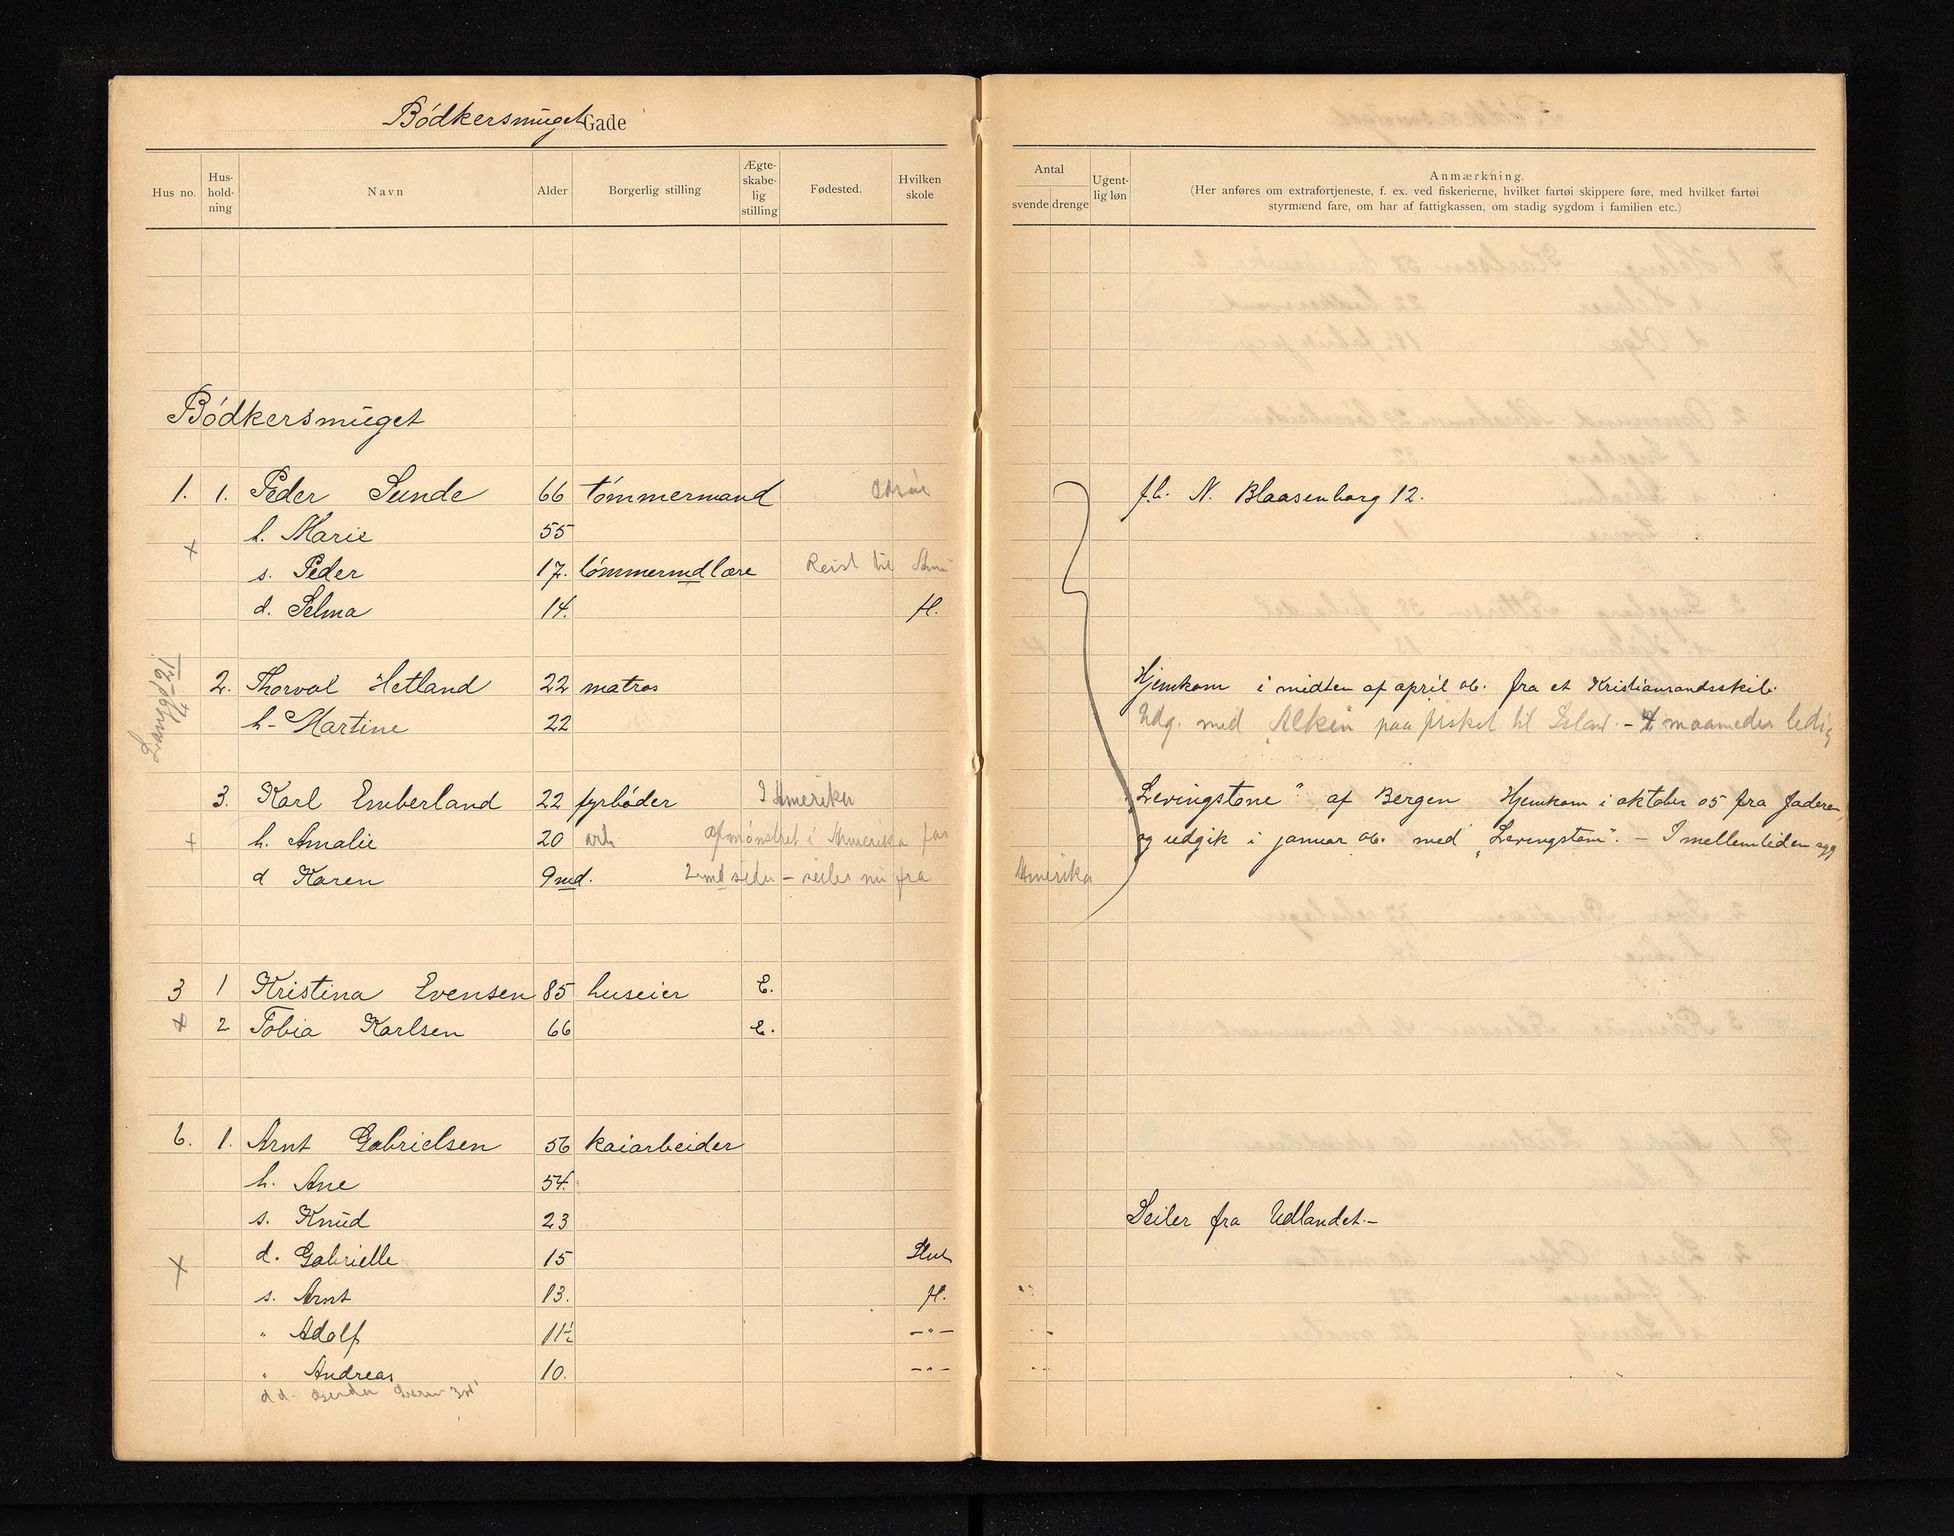 Bødkersmuget Gade
Hus no. Hus-hold-ning Navn Alder Borgerlig stilling Ægte-skabe-lig stilling Fødested. Hvilken skole
Antal svende drenge Ugent-lig løn Anmærkning.
(Her anføres om extrafortjeneste, f. ex. ved fiskerierne, hvilket fartøi skippere føre, med hvilket fartøi
styrmænd fare, om har af fattigkassen, om stadig sygdom i familien etc.)
Bødkersmuget
1. 1. Peder Sunde 66 tømmermand f.h. N. Blaasenborg 12.
h. Marie 55
s. Peder 17. tømmermdlære Reist til
d. Selma 14. H.
2. Thorval Hetland 22 matros Hjemkom i midten af april 06. fra et Kristiansandsskib.
h. Martine 22 Udg. med Alken paa fisket til Island. - 4 maaneder ledig
3. Karl Emberland 22 fyrbøder I Amerika "Levingstone" af Bergen Hjemkom i oktober 05 fra Jaderen,
h. Amalie 20 arb. afmønstret i Amerika for og udgik i januar 06. med "Levingston". - I mellemtiden syg
d Karen 9 md. 2 md siden - seiler nu fra Amerika
3 1 Kristina Evensen 85 huseier E.
2 Tobia Karlsen 66 E.
6. 1. Arnt Gabrielsen 56 kaiarbeider
h. Ane 54.
s. Knud 23 Seiler fra Udlandet. -
d. Gabrielle 15
s. Arnt 13. H.
" Adolf 11½ - " -
" Andreas 10. - " -